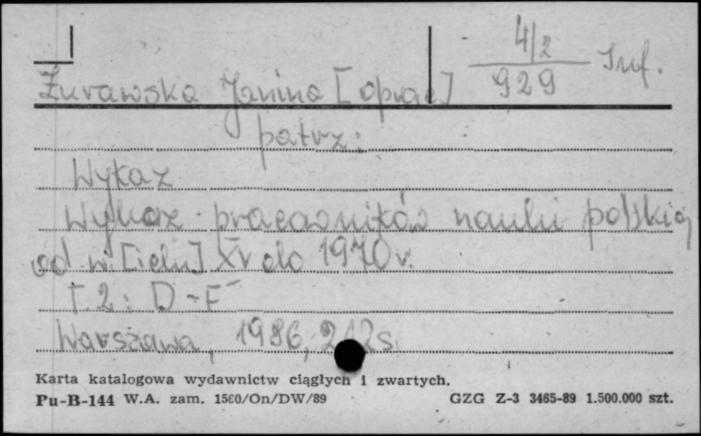 4/2
929 Inf.
Żurawska Janina [oprac]
patrz:
Wykaz
Wykaz pracowników nauki polskiej
od w[ieku] XV do 1970 r.
T. 2: D-F
Warszawa, 1986, 212 s.
Karta katalogowa wydawnictw ciągłych i zwartych.
Pu-B-144 W.A. zam. 1560/On/DW/89 GZG Z-3 3465-89 1.500.000 szt.